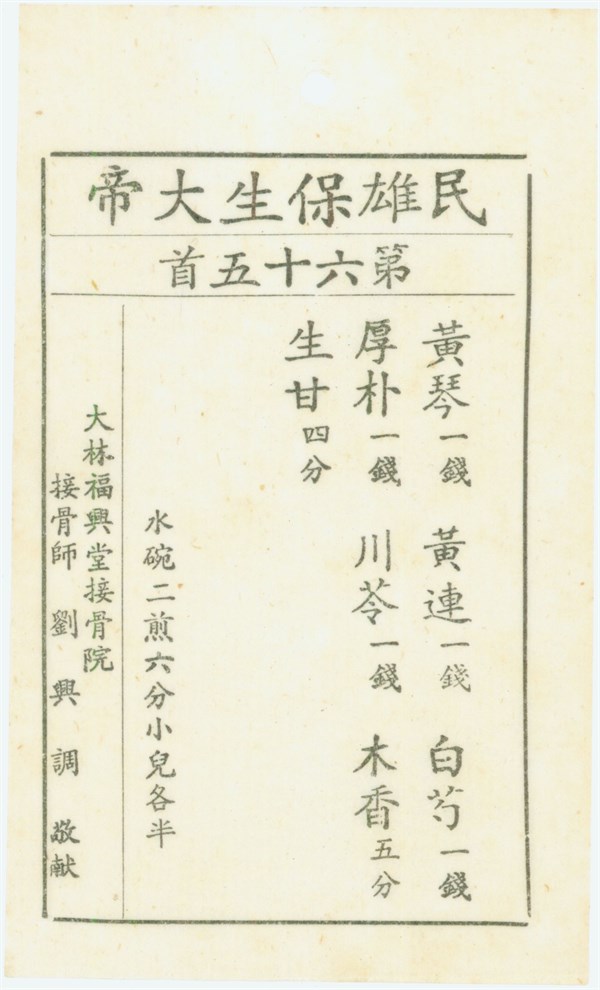 民雄保生大帝
第六十五首
黃琴一錢 黃連一錢 白芍一錢
厚朴一錢 川苓一錢 木香五分
生甘四分
水碗二煎六分小兒各半
大林福興堂接骨院
接骨師 劉興調 敬献